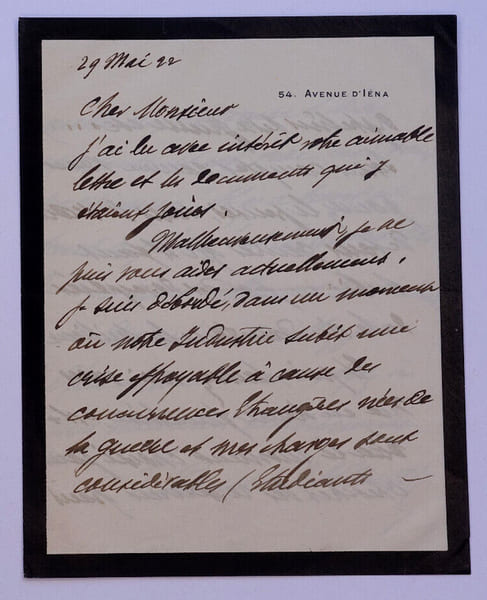 29 Mai 22
54. AVENUE D'IÉNA
Cher Monsieur
J'ai lu avec intérêt votre aimable
lettre et les documents qui y
étaient joints.
Malheureusement je ne
puis vous aider actuellement.
Je suis débordé, dans un moment
où notre Industrie subit une
crise effroyable à cause des
concurrences Etrangères nées de
la guerre et mes charges sont
considérables (Etudiants —